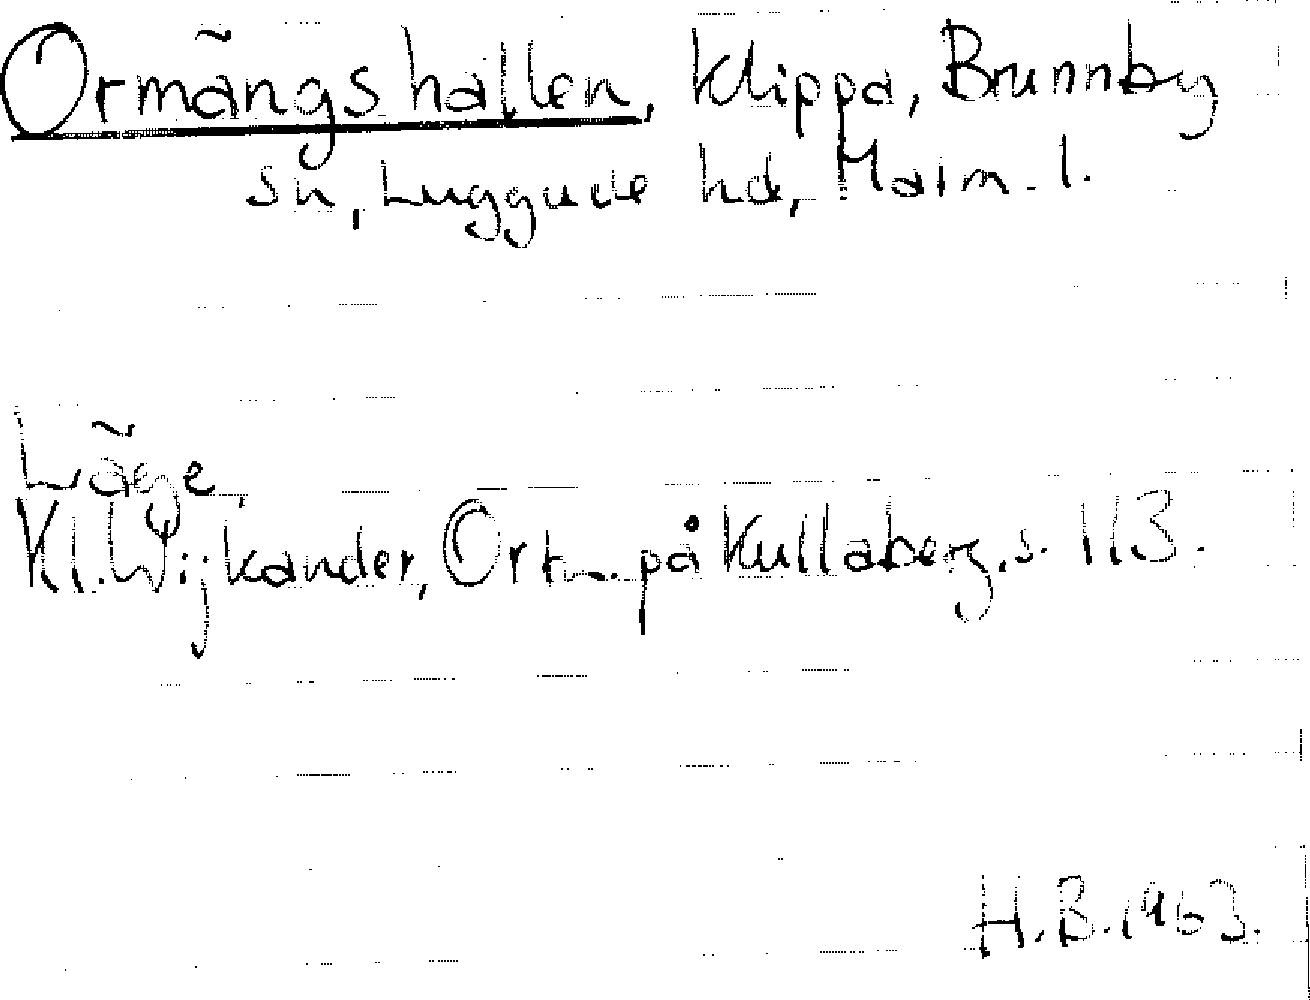 Ormängshallen, Klippa, Brunnby
sn, Luggude hd, Malm. l.
Läge.
Kl. Wijkander, Ortn. på Kullaberg, s. 113.
H.B. 1963.